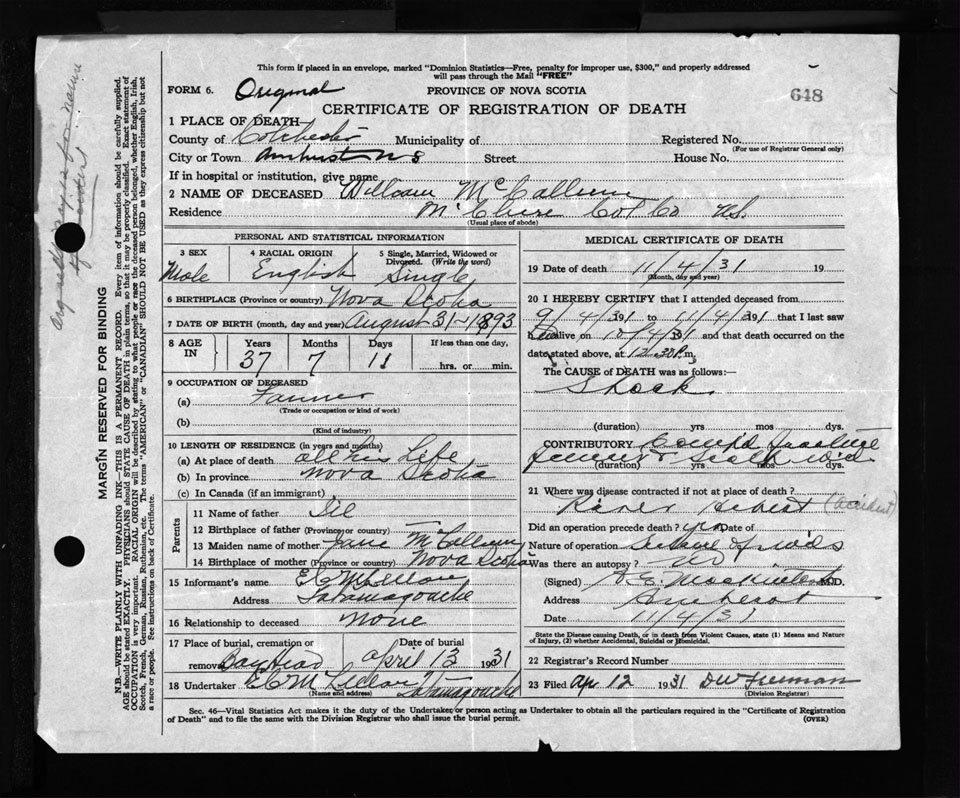 This form if placed in an envelope, marked "Dominion Statistics—Free, penalty for improper use, $300," and properly addressed
will pass through the Mail "FREE"
FORM 6. Original PROVINCE OF NOVA SCOTIA 648
CERTIFICATE OF REGISTRATION OF DEATH
1 PLACE OF DEATH—
County of Colchester Municipality of Registered No.
(For use of Registrar General only)
City or Town Amherst N S Street House No.
If in hospital or institution, give name
2 NAME OF DECEASED William McCallum
Residence Col Co N.S.
(Usual place of abode)
PERSONAL AND STATISTICAL INFORMATION
3 SEX 4 RACIAL ORIGIN 5 Single, Married, Widowed or
Divorced. (Write the word)
Male English Single
6 BIRTHPLACE (Province or country) Nova Scotia
7 DATE OF BIRTH (month, day and year) August 31-1893
8 AGE IN Years Months Days If less than one day,
37 7 11 hrs. or min.
9 OCCUPATION OF DECEASED
(a) Farmer
(Trade or occupation or kind of work)
(b)
(Kind of industry)
10 LENGTH OF RESIDENCE (in years and months)
(a) At place of death all his Life
(b) In province Nova Scotia
(c) In Canada (if an immigrant)
Parents
11 Name of father
12 Birthplace of father (Province or country)
13 Maiden name of mother Jane McCallum
14 Birthplace of mother (Province or country) Nova Scotia
15 Informant's name
Address Tatamagouche
16 Relationship to deceased None
17 Place of burial, cremation or removal Date of burial
Bay Head April 13 1931
18 Undertaker Tatamagouche
(Name and address)
MEDICAL CERTIFICATE OF DEATH
19 Date of death 11/4/31 19
(Month, day and year)
20 I HEREBY CERTIFY that I attended deceased from
9/4/31 to 11/4/31 that I last saw
alive on 10/4/31 and that death occurred on the
date stated above, at 12.30 P.m.
The CAUSE of DEATH was as follows:—
Shock
(duration) yrs mos dys.
CONTRIBUTORY Comp'd fracture
femur & Scalp
(duration) yrs mos dys.
21 Where was disease contracted if not at place of death?
River Hebert (accident)
Did an operation precede death? yes Date of
Nature of operation
Was there an autopsy? No
(Signed) M.D.
Address Amherst
Date 11/4/31
State the Disease causing Death, or in death from Violent Causes, state (1) Means and Nature
of Injury, (2) whether Accidental, Suicidal or Homicidal.
22 Registrar's Record Number
23 Filed Apr 12 1931 DW Freeman
(Division Registrar)
Sec. 46—Vital Statistics Act makes it the duty of the Undertaker or person acting as Undertaker to obtain all the particulars required in the "Certificate of Registration
of Death" and to file the same with the Division Registrar who shall issue the burial permit. (OVER)
MARGIN RESERVED FOR BINDING
N.B.—WRITE PLAINLY WITH UNFADING INK—THIS IS A PERMANENT RECORD. Every item of information should be carefully supplied.
AGE should be stated EXACTLY. PHYSICIANS should STATE CAUSE OF DEATH in plain terms, so that it may be properly classified. Exact statement of
OCCUPATION is very important. RACIAL ORIGIN will be described by stating to what people or race the deceased person belonged, whether English, Irish,
Scotch, French, German, Russian, Ruthenian, etc. The terms "AMERICAN" or "CANADIAN" SHOULD NOT BE USED as they express citizenship but not
a race or people. See instructions on back of Certificate.